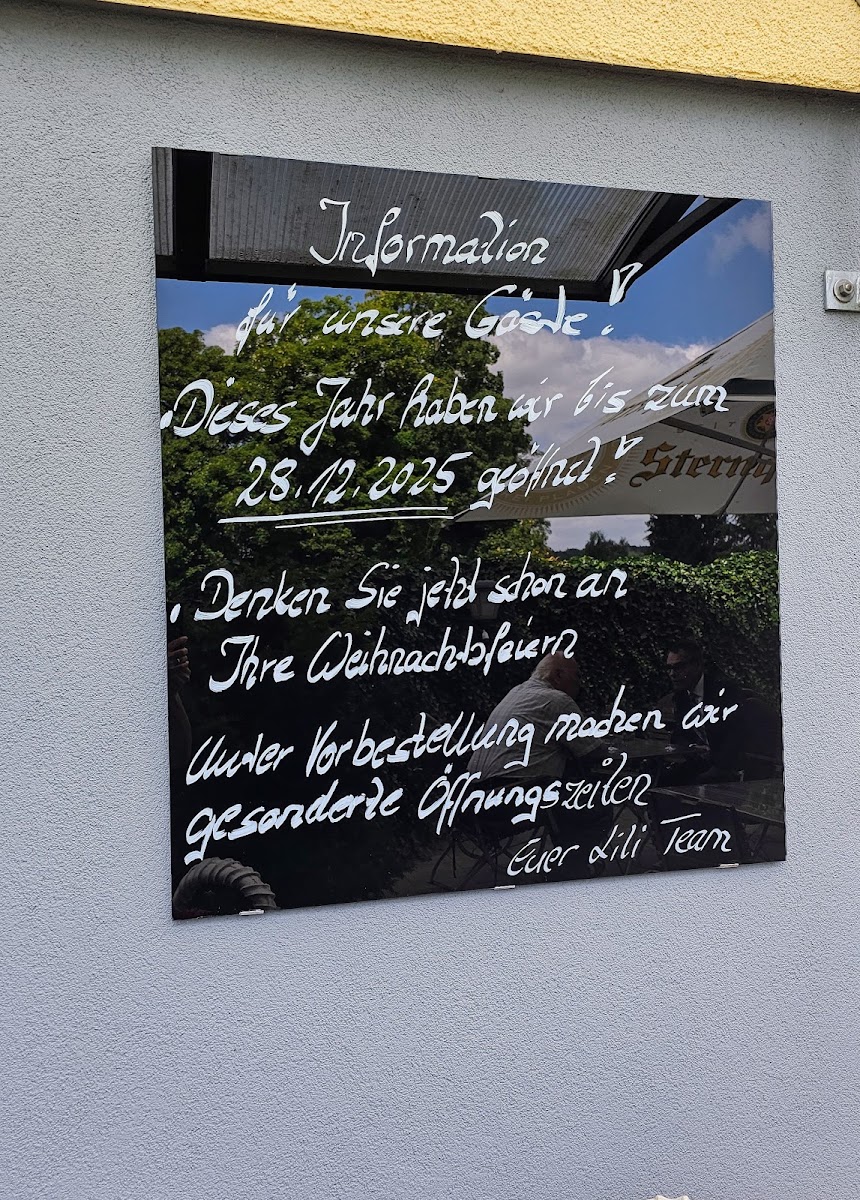 Information
für unsere Gäste!
• Dieses Jahr haben wir bis zum
28.12.2025 geöffnet!
• Denken Sie jetzt schon an
Ihre Weihnachtsfeiern
Unter Vorbestellung machen wir
gesonderte Öffnungszeiten
Euer Lili Team
Stern